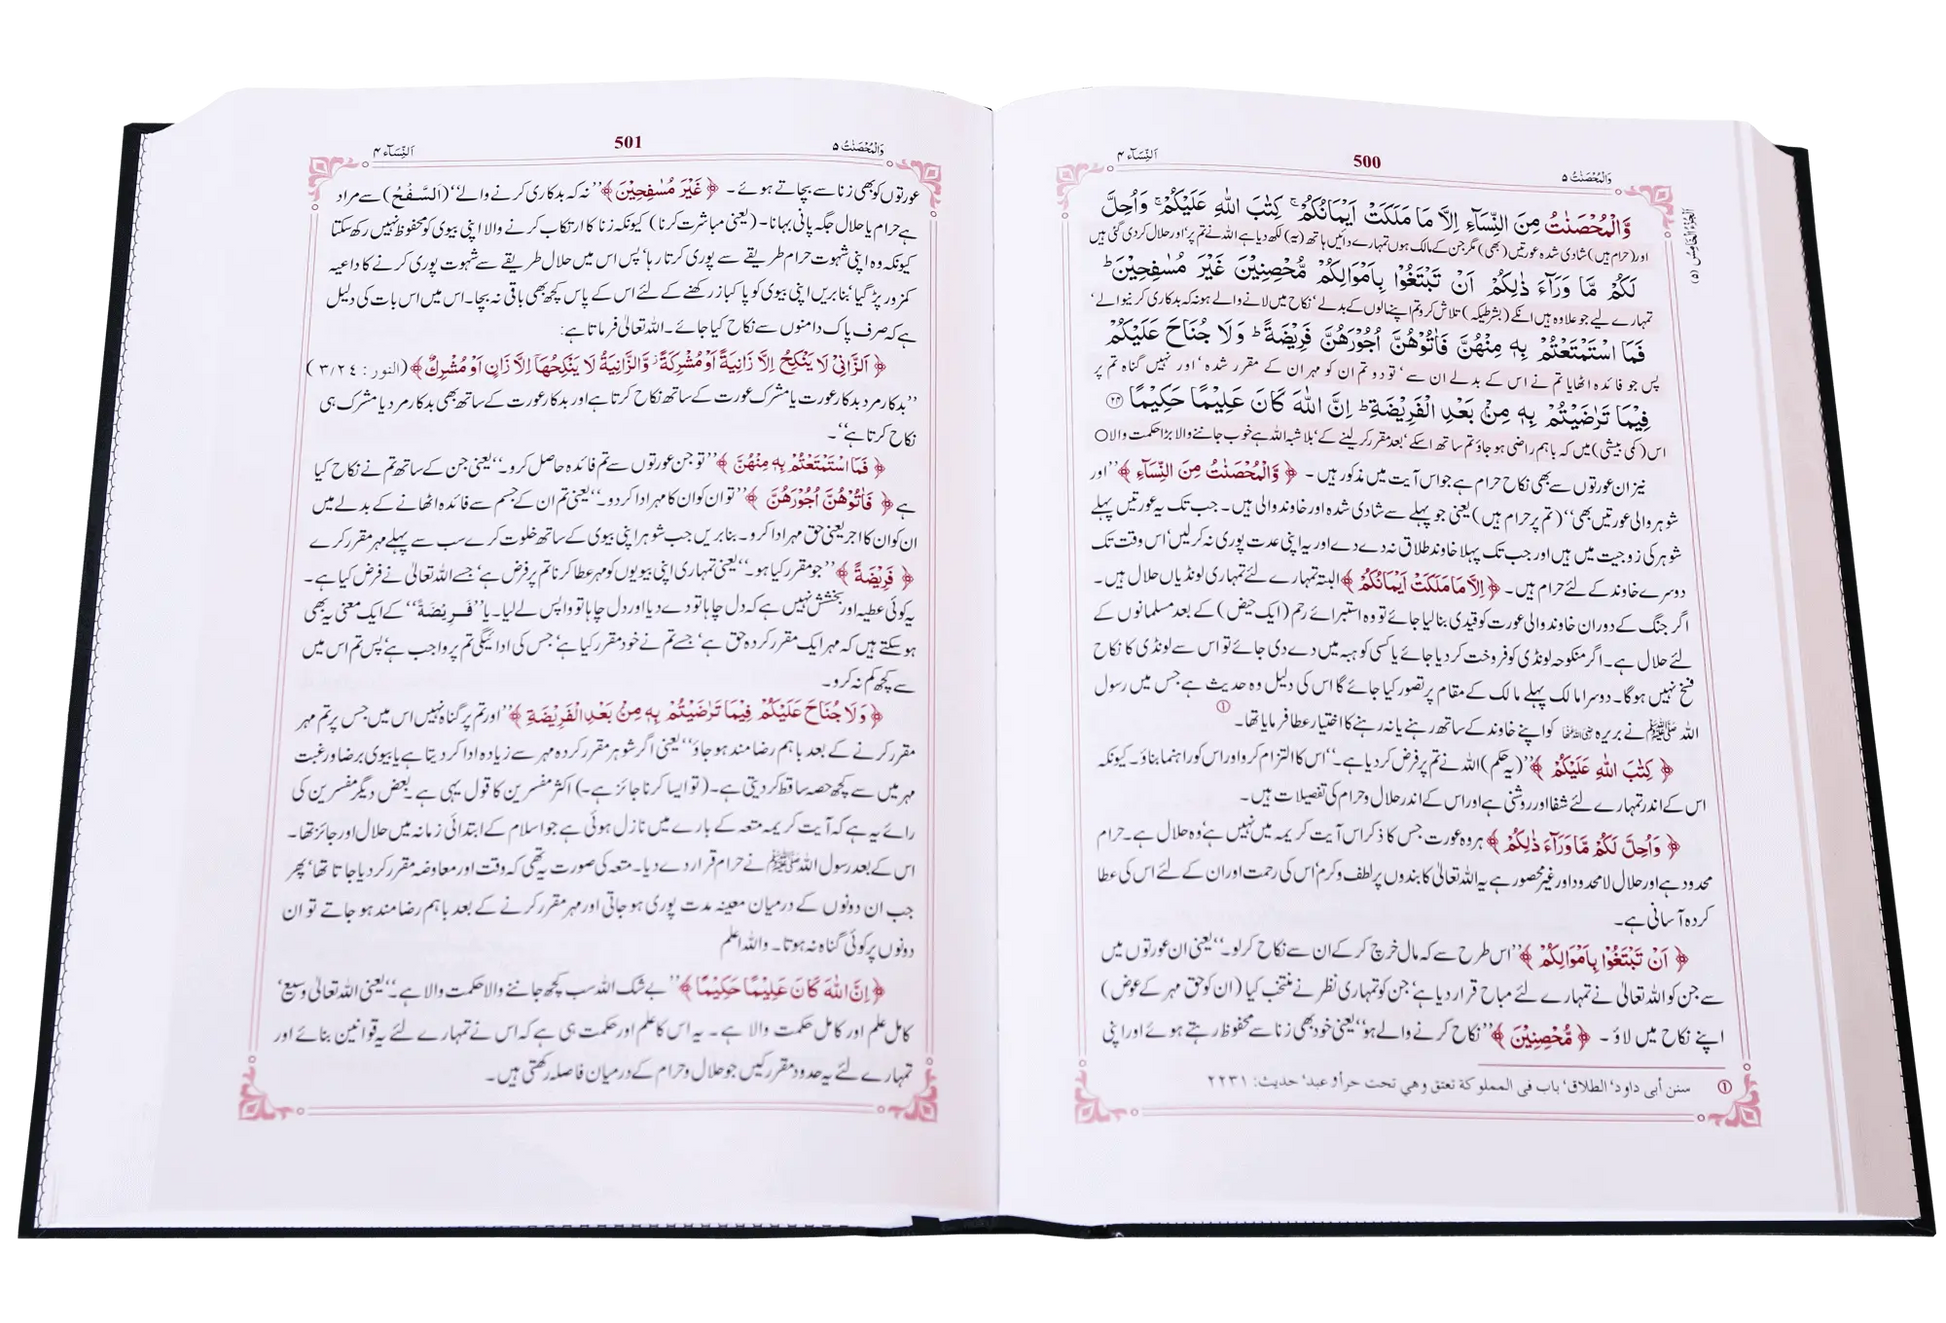 اَلنِّسَآء ۴
500
وَالْمُحْصَنٰتُ ۵
اَلْجُزْءُ الْخَامِسُ (۵)
وَّالْمُحْصَنٰتُ مِنَ النِّسَآءِ اِلَّا مَا مَلَكَتْ اَيْمَانُكُمْ ۚ كِتٰبَ اللّٰهِ عَلَيْكُمْ ۚ وَاُحِلَّ
اور (حرام ہیں) شادی شدہ عورتیں (بھی) مگر جن کے مالک ہوں تمہارے دائیں ہاتھ (یہ) لکھ دیا ہے اللہ نے تم پر‘ اور حلال کردی گئی ہیں
لَكُمْ مَّا وَرَآءَ ذٰلِكُمْ اَنْ تَبْتَغُوْا بِاَمْوَالِكُمْ مُّحْصِنِيْنَ غَيْرَ مُسٰفِحِيْنَ ؕ
تمہارے لیے جو علاوہ ہیں انکے (بشرطیکہ) تلاش کرو تم اپنے مالوں کے بدلے‘ نکاح میں لانے والے ہو نہ کہ بدکاری کرنیوالے‘
فَمَا اسْتَمْتَعْتُمْ بِهٖ مِنْهُنَّ فَاٰتُوْهُنَّ اُجُوْرَهُنَّ فَرِيْضَةً ؕ وَ لَا جُنَاحَ عَلَيْكُمْ
پس جو فائدہ اٹھایا تم نے اس کے بدلے ان سے‘ تو دو تم ان کو مہر ان کے مقرر شدہ‘ اور نہیں گناہ تم پر
فِيْمَا تَرٰضَيْتُمْ بِهٖ مِنْۢ بَعْدِ الْفَرِيْضَةِ ؕ اِنَّ اللّٰهَ كَانَ عَلِيْمًا حَكِيْمًا ۝۲۴
اس (کمی بیشی) میں کہ باہم راضی ہو جاؤ تم ساتھ اسکے‘ بعد مقرر کر لینے کے‘ بلاشبہ اللہ ہے خوب جاننے والا بڑا حکمت والا○
نیز ان عورتوں سے بھی نکاح حرام ہے جو اس آیت میں مذکور ہیں۔ ﴿ وَّالْمُحْصَنٰتُ مِنَ النِّسَآءِ ﴾ ’’اور
شوہر والی عورتیں بھی‘‘ (تم پر حرام ہیں) یعنی جو پہلے سے شادی شدہ اور خاوند والی ہیں۔ جب تک یہ عورتیں پہلے
شوہر کی زوجیت میں ہیں اور جب تک پہلا خاوند طلاق نہ دے دے اور یہ اپنی عدت پوری نہ کر لیں‘ اس وقت تک
دوسرے خاوند کے لئے حرام ہیں۔ ﴿ اِلَّا مَا مَلَكَتْ اَيْمَانُكُمْ ﴾ البتہ تمہارے لئے تمہاری لونڈیاں حلال ہیں۔
اگر جنگ کے دوران خاوند والی عورت کو قیدی بنا لیا جائے تو وہ استبرائے رحم (ایک حیض) کے بعد مسلمانوں کے
لئے حلال ہے۔ اگر منکوحہ لونڈی کو فروخت کر دیا جائے یا کسی کو ہبہ میں دے دی جائے تو اس سے لونڈی کا نکاح
فسخ نہیں ہوگا۔ دوسرا مالک پہلے مالک کے مقام پر تصور کیا جائے گا اس کی دلیل وہ حدیث ہے جس میں رسول
اللہ ﷺ نے بریرہ رضی اللہ عنہا کو اپنے خاوند کے ساتھ رہنے یا نہ رہنے کا اختیار عطا فرمایا تھا۔ ①
﴿ كِتٰبَ اللّٰهِ عَلَيْكُمْ ﴾ ’’(یہ حکم) اللہ نے تم پر فرض کر دیا ہے۔‘‘ اس کا التزام کرو اور اس کو راہنما بناؤ۔ کیونکہ
اس کے اندر تمہارے لئے شفا اور روشنی ہے اور اس کے اندر حلال و حرام کی تفصیلات ہیں۔
﴿ وَاُحِلَّ لَكُمْ مَّا وَرَآءَ ذٰلِكُمْ ﴾ ہر وہ عورت جس کا ذکر اس آیت کریمہ میں نہیں ہے‘ وہ حلال ہے۔ حرام
محدود ہے اور حلال لامحدود اور غیر محصور ہے یہ اللہ تعالیٰ کا بندوں پر لطف و کرم‘ اس کی رحمت اور ان کے لئے اس کی عطا
کردہ آسانی ہے۔
﴿ اَنْ تَبْتَغُوْا بِاَمْوَالِكُمْ ﴾ ’’اس طرح سے کہ مال خرچ کر کے ان سے نکاح کر لو۔‘‘ یعنی ان عورتوں میں
سے جن کو اللہ تعالیٰ نے تمہارے لئے مباح قرار دیا ہے‘ جن کو تمہاری نظر نے منتخب کیا (ان کو حق مہر کے عوض)
اپنے نکاح میں لاؤ۔ ﴿ مُّحْصِنِيْنَ ﴾ ’’نکاح کرنے والے ہو‘‘ یعنی خود بھی زنا سے محفوظ رہتے ہوئے اور اپنی
① سنن أبی داود‘ الطلاق‘ باب فی المملوکة تعتق وهي تحت حر أو عبد‘ حدیث: ۲۲۳۱
اَلنِّسَآء ۴
501
وَالْمُحْصَنٰتُ ۵
عورتوں کو بھی زنا سے بچاتے ہوئے۔ ﴿ غَيْرَ مُسٰفِحِيْنَ ﴾ ’’نہ کہ بدکاری کرنے والے‘‘ (اَلسَّفْحُ) سے مراد
ہے حرام یا حلال جگہ پانی بہانا۔ (یعنی مباشرت کرنا) کیونکہ زنا کا ارتکاب کرنے والا اپنی بیوی کو محفوظ نہیں رکھ سکتا
کیونکہ وہ اپنی شہوت حرام طریقے سے پوری کرتا رہا‘ پس اس میں حلال طریقے سے شہوت پوری کرنے کا داعیہ
کمزور پڑ گیا‘ بنا بریں اپنی بیوی کو پاکباز رکھنے کے لئے اس کے پاس کچھ بھی باقی نہ بچا۔ اس میں اس بات کی دلیل
ہے کہ صرف پاک دامنوں سے نکاح کیا جائے۔ اللہ تعالیٰ فرماتا ہے:
﴿ اَلزَّانِيْ لَا يَنْكِحُ اِلَّا زَانِيَةً اَوْ مُشْرِكَةً ۡ وَّالزَّانِيَةُ لَا يَنْكِحُهَاۤ اِلَّا زَانٍ اَوْ مُشْرِكٌ ﴾ (النور: ۲۴/۳)
’’بدکار مرد بدکار عورت یا مشرک عورت کے ساتھ نکاح کرتا ہے اور بدکار عورت کے ساتھ بھی بدکار مرد یا مشرک ہی
نکاح کرتا ہے‘‘۔
﴿ فَمَا اسْتَمْتَعْتُمْ بِهٖ مِنْهُنَّ ﴾ ’’تو جن عورتوں سے تم فائدہ حاصل کرو۔‘‘ یعنی جن کے ساتھ تم نے نکاح کیا
ہے ﴿ فَاٰتُوْهُنَّ اُجُوْرَهُنَّ ﴾ ’’تو ان کو ان کا مہر ادا کر دو۔‘‘ یعنی تم ان کے جسم سے فائدہ اٹھانے کے بدلے میں
ان کو ان کا اجر یعنی حق مہر ادا کرو۔ بنا بریں جب شوہر اپنی بیوی کے ساتھ خلوت کرے سب سے پہلے مہر مقرر کرے
﴿ فَرِيْضَةً ﴾ ’’جو مقرر کیا ہو۔‘‘ یعنی تمہاری اپنی بیویوں کو مہر عطا کرنا تم پر فرض ہے‘ جسے اللہ تعالیٰ نے فرض کیا ہے۔
یہ کوئی عطیہ اور بخشش نہیں ہے کہ دل چاہا تو دے دیا اور دل چاہا تو واپس لے لیا۔ یا ’’فَرِيْضَةً‘‘ کے ایک معنی یہ بھی
ہو سکتے ہیں کہ مہر ایک مقرر کردہ حق ہے‘ جسے تم نے خود مقرر کیا ہے‘ جس کی ادائیگی تم پر واجب ہے‘ پس تم اس میں
سے کچھ کم نہ کرو۔
﴿ وَلَا جُنَاحَ عَلَيْكُمْ فِيْمَا تَرٰضَيْتُمْ بِهٖ مِنْۢ بَعْدِ الْفَرِيْضَةِ ﴾ ’’اور تم پر گناہ نہیں اس میں جس پر تم مہر
مقرر کرنے کے بعد باہم رضامند ہو جاؤ‘‘ یعنی اگر شوہر مقرر کردہ مہر سے زیادہ ادا کر دیتا ہے یا بیوی برضا و رغبت
مہر میں سے کچھ حصہ ساقط کر دیتی ہے۔ (تو ایسا کرنا جائز ہے۔) اکثر مفسرین کا قول یہی ہے۔ بعض دیگر مفسرین کی
رائے یہ ہے کہ آیت کریمہ متعہ کے بارے میں نازل ہوئی ہے جو اسلام کے ابتدائی زمانہ میں حلال اور جائز تھا۔
اس کے بعد رسول اللہ ﷺ نے حرام قرار دے دیا۔ متعہ کی صورت یہ تھی کہ وقت اور معاوضہ مقرر کر دیا جاتا تھا‘ پھر
جب ان دونوں کے درمیان معینہ مدت پوری ہو جاتی اور مہر مقرر کرنے کے بعد باہم رضامند ہو جاتے تو ان
دونوں پر کوئی گناہ نہ ہوتا۔ واللہ اعلم
﴿ اِنَّ اللّٰهَ كَانَ عَلِيْمًا حَكِيْمًا ﴾ ’’بے شک اللہ سب کچھ جاننے والا حکمت والا ہے۔‘‘ یعنی اللہ تعالیٰ وسیع‘
کامل علم اور کامل حکمت والا ہے۔ یہ اس کا علم اور حکمت ہی ہے کہ اس نے تمہارے لئے یہ قوانین بنائے اور
تمہارے لئے یہ حدود مقرر کیں جو حلال و حرام کے درمیان فاصلہ رکھتی ہیں۔